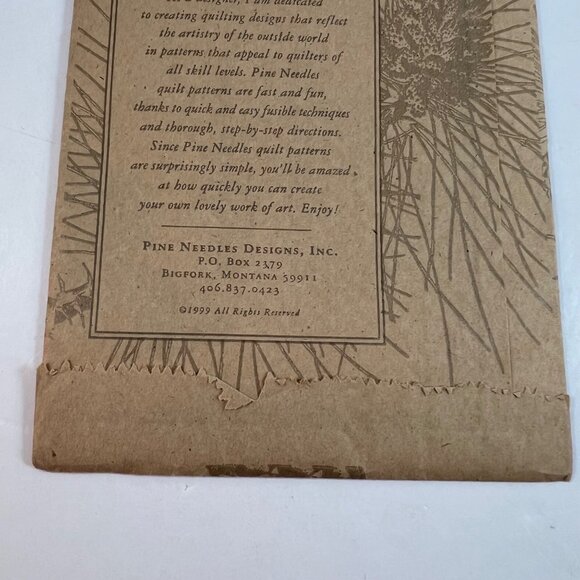 As a designer, I am dedicated
to creating quilting designs that reflect
the artistry of the outside world
in patterns that appeal to quilters of
all skill levels. Pine Needles
quilt patterns are fast and fun,
thanks to quick and easy fusible techniques
and thorough, step-by-step directions.
Since Pine Needles quilt patterns
are surprisingly simple, you'll be amazed
at how quickly you can create
your own lovely work of art. Enjoy!
PINE NEEDLES DESIGNS, INC.
P.O. BOX 2379
BIGFORK, MONTANA 59911
406.837.0423
©1999 All Rights Reserved